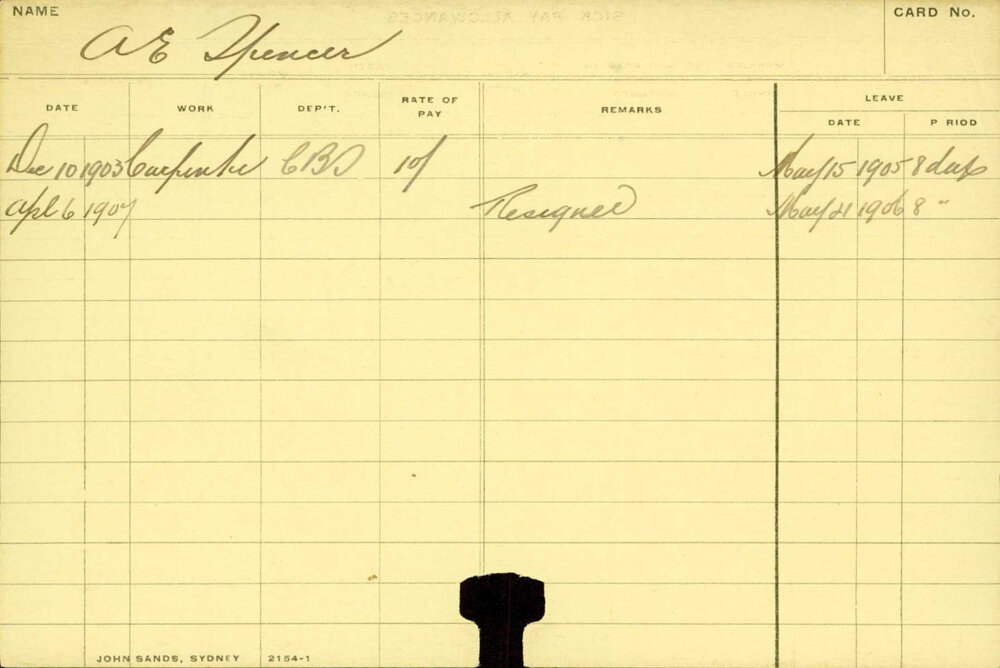 NAME
A E Spencer
CARD No.
DATE WORK DEP'T. RATE OF PAY REMARKS LEAVE
DATE P RIOD
Dec 10 1903 Carpenter CBD 10/ May 15 1905 8 days
Apl 6 1907 Resigned May 21 1906 8 "
JOHN SANDS, SYDNEY 2154-1